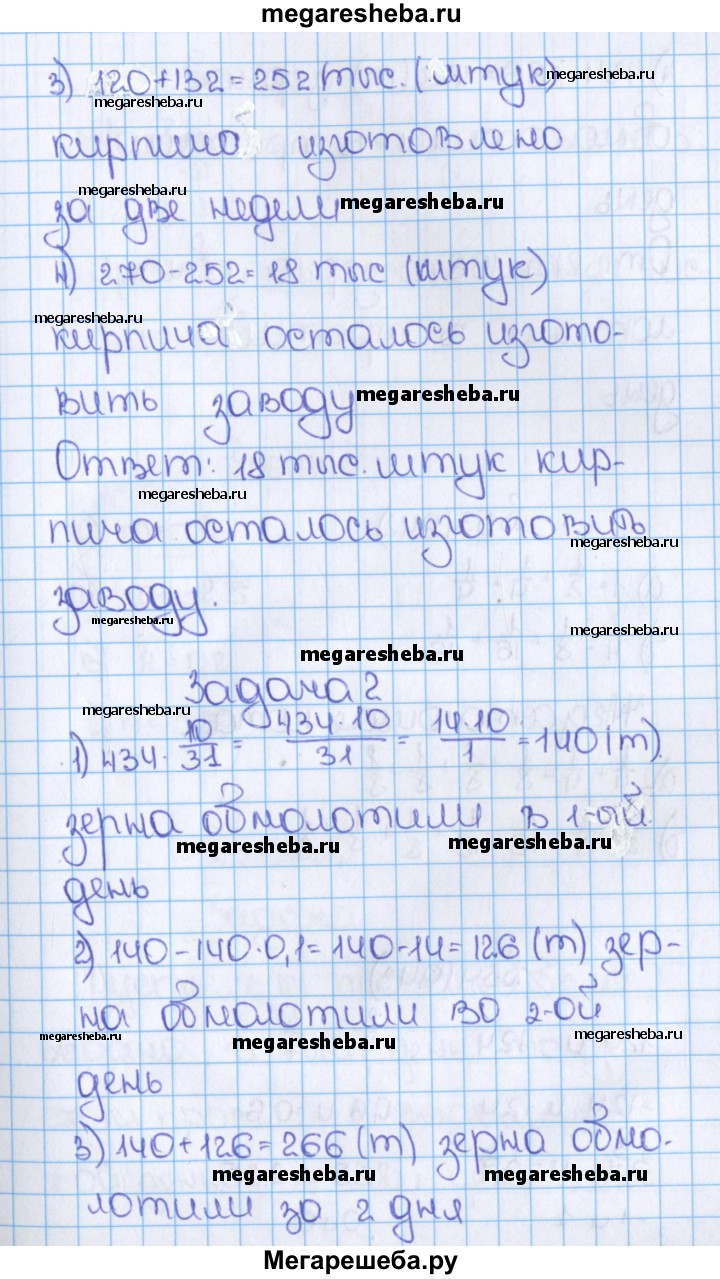 megaresheba.ru
3) 120+132=252 тыс. (штук)
megaresheba.ru
кирпича изготовлено
megaresheba.ru
за две недели megaresheba.ru
4) 270-252=18 тыс (штук)
megaresheba.ru
кирпича осталось изгото-
вить заводу megaresheba.ru
Ответ: 18 тыс. штук кир-
megaresheba.ru
пича осталось изготовить
megaresheba.ru
заводу.
megaresheba.ru megaresheba.ru
megaresheba.ru
Задача 2
megaresheba.ru
1) 434 · 10/31 = 434·10/31 = 14·10/1 = 140 (т).
зерна обмолотили в 1-ый
megaresheba.ru megaresheba.ru
день
2) 140-140·0,1=140-14=126 (т) зер-
на обмолотили во 2-ой
megaresheba.ru megaresheba.ru megaresheba.ru
день
3) 140+126=266 (т) зерна обмо-
megaresheba.ru megaresheba.ru
лотили за 2 дня
Мегарешеба.ру